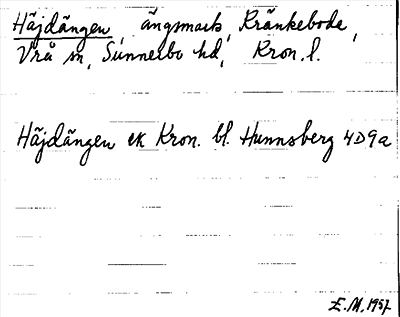 Häjdängen, ängsmark, Kränkebode,
Vrå sn, Sunnerbo hd, Kron. l.
Häjdängen ek Kron. bl. Hunnsberg 4D9a
E.M. 1957